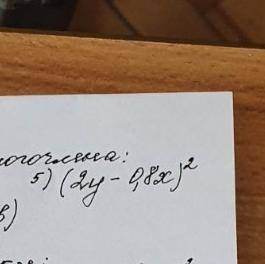 ногочлена:
5) (2y - 0,8x)²
в)